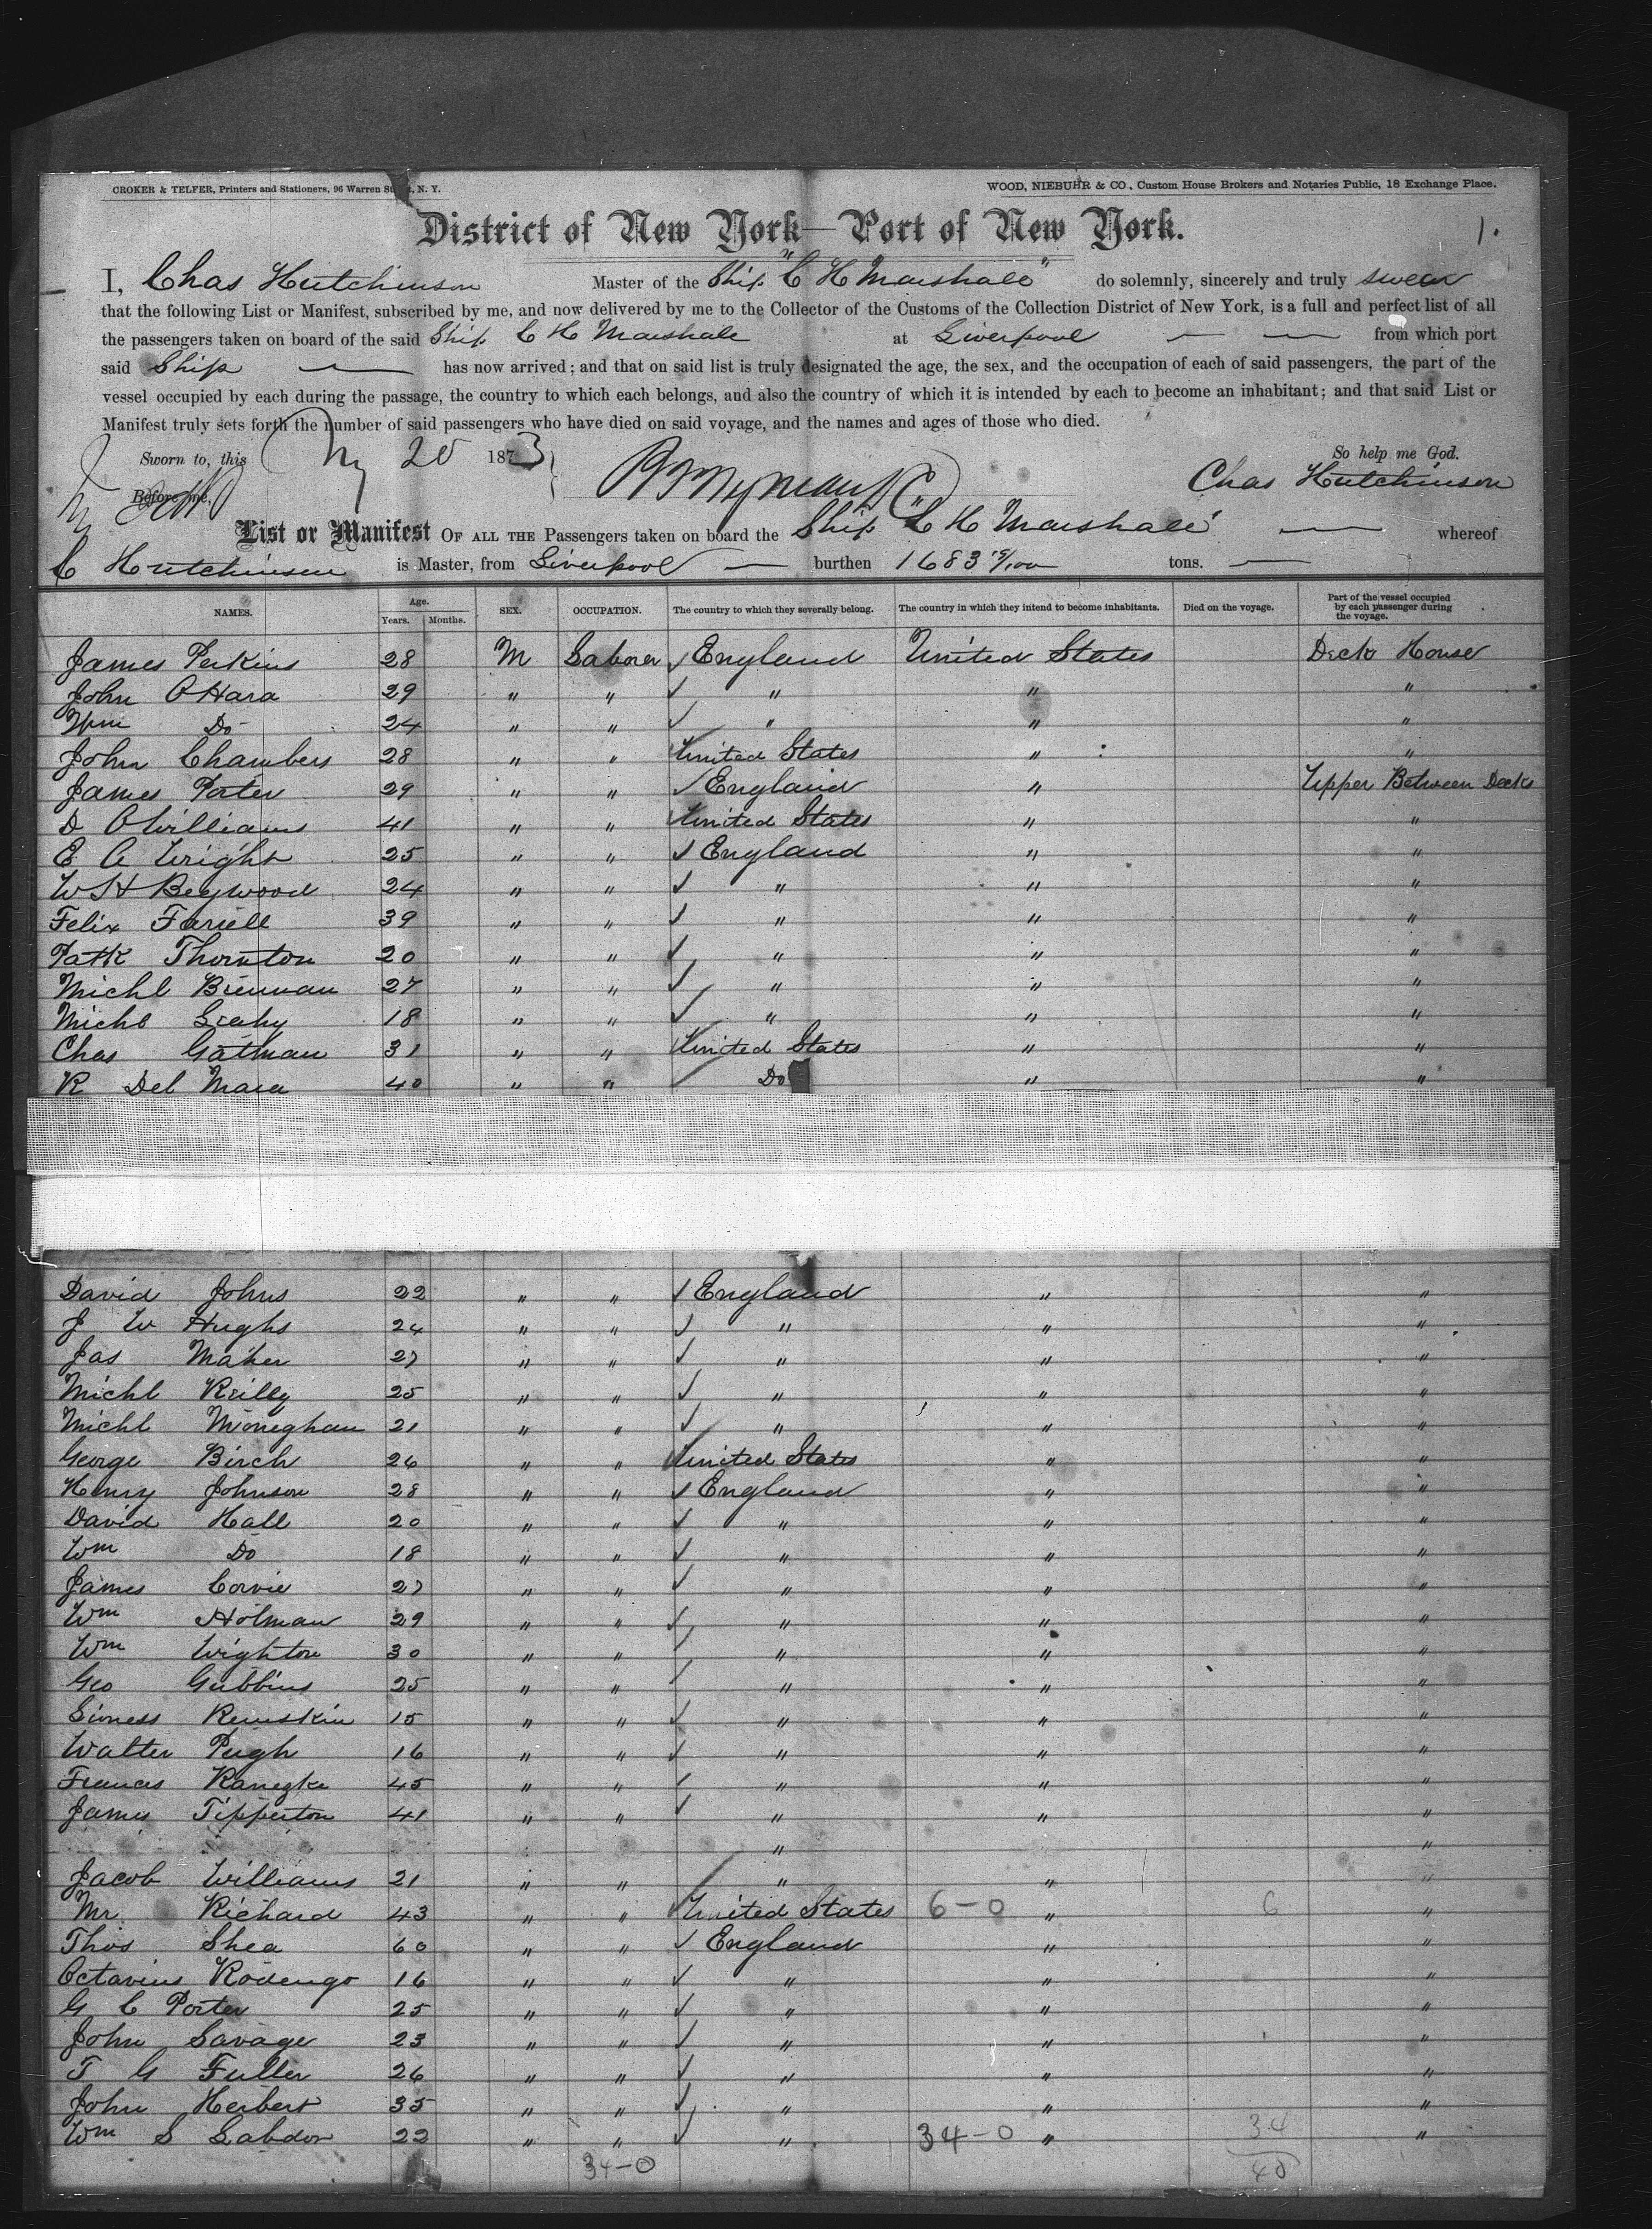 CROKER & TELFER, Printers and Stationers, 96 Warren Street, N. Y.
WOOD, NIEBUHR & CO., Custom House Brokers and Notaries Public, 18 Exchange Place.
District of New York—Port of New York.
1.
I, Chas Hutchinson Master of the Ship "C H Marshall" do solemnly, sincerely and truly swear
that the following List or Manifest, subscribed by me, and now delivered by me to the Collector of the Customs of the Collection District of New York, is a full and perfect list of all
the passengers taken on board of the said Ship C H Marshall at Liverpool — — from which port
said Ship — has now arrived; and that on said list is truly designated the age, the sex, and the occupation of each of said passengers, the part of the
vessel occupied by each during the passage, the country to which each belongs, and also the country of which it is intended by each to become an inhabitant; and that said List or
Manifest truly sets forth the number of said passengers who have died on said voyage, and the names and ages of those who died.
Sworn to, this 20 1873 So help me God.
Before me, Chas Hutchinson
List or Manifest OF ALL THE Passengers taken on board the Ship "C H Marshall" — whereof
C Hutchinson is Master, from Liverpool — burthen 1683 tons. —
NAMES. Age. Years. Months. SEX. OCCUPATION. The country to which they severally belong. The country in which they intend to become inhabitants. Died on the voyage. Part of the vessel occupied by each passenger during the voyage.
James Perkins 28 M Laborer ✓ England United States Deck House
John O'Hara 29 " " ✓ " " "
Wm Do 24 " " ✓ " " "
John Chambers 28 " " United States " "
James Porter 29 " " ✓ England " Upper Between Decks
D O Williams 41 " " United States " "
E A Wright 25 " " ✓ England " "
W H Begwood 24 " " ✓ " " "
Felix Farrell 39 " " ✓ " " "
Patk Thornton 20 " " ✓ " " "
Michl Brennan 27 " " ✓ " " "
Michl Leahy 18 " " ✓ " " "
Chas Gatman 31 " " United States " "
R Del Mara 40 " " Do " "
David Johns 22 " " ✓ England " "
J W Hughs 24 " " ✓ " " "
Jas Maher 27 " " ✓ " " "
Michl Reilly 25 " " ✓ " " "
Michl Moneghan 21 " " ✓ " " "
George Birch 26 " " United States " "
Henry Johnson 28 " " ✓ England " "
David Hall 20 " " ✓ " " "
Wm Do 18 " " ✓ " " "
James Corvie 27 " " ✓ " " "
Wm Holman 29 " " ✓ " " "
Wm Wighton 30 " " ✓ " " "
Geo Gubbins 25 " " ✓ " " "
Reinskin 15 " " ✓ " " "
Walter Pugh 16 " " ✓ " " "
Frances Kanezke 45 " " ✓ " " "
James Tipperton 41 " " ✓ " " "
" "
Jacob Williams 21 " " " " "
Mr Richard 43 " " United States 6-0 " 6 "
Thos Shea 60 " " ✓ England " "
Octavius Rodengo 16 " " ✓ " " "
G C Porter 25 " " ✓ " " "
John Savage 23 " " ✓ " " "
T G Fuller 26 " " ✓ " " "
John Herbert 35 " " ✓ " " "
Wm S Labdon 22 " " ✓ " 34-0 " 34 "
34-0 40